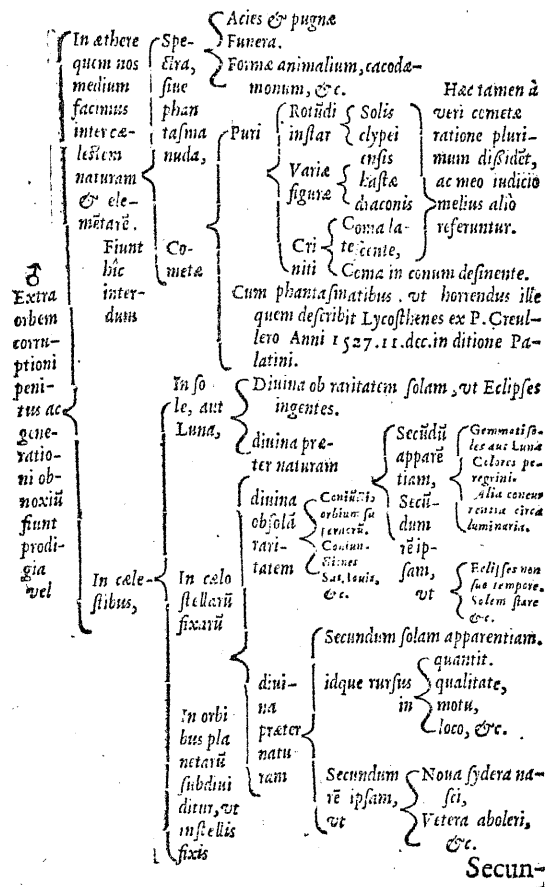 ♂
Extra
orbem
corru-
ptioni
peni-
tus ac
gene-
ratio-
ni ob-
noxiũ
fiunt
prodi-
gia
vel
In æthere
quem nos
medium
facimus
inter cæ-
lestem
naturam
& ele-
mẽtarẽ.
Fiunt
hîc
inter-
dum
Spe-
ctra,
siue
phan
tasma
nuda,
Acies & pugnæ
Funera.
Formæ animalium, cacodæ-
monum, &c.
Co-
metæ
Puri
Rotũdi
instar
Solis
clypei
Variæ
figuræ
ensis
hastæ
draconis
Cri-
niti
Coma la-
te
Coma in conum desinente.
Hæc tamen à
veri cometæ
ratione pluri-
mum dißidẽt,
ac meo iudicio
melius alio
referuntur.
Cum phantasmatibus, vt horrendus ille
quem describit Lycosthenes ex P. Creul-
lero Anni 1527.11.dec.in ditione Pa-
latini.
In cæle-
stibus,
In so
le, aut
Luna,
Diuina ob raritatem solam, vt Eclipses
ingentes.
diuina præ-
ter naturam
Secũdũ
apparẽ
tiam,
Gemmati so-
les aut Lunæ
Colores pe-
regrini.
Alia concur
rentia circa
luminaria.
Secũ-
dum
rẽ ip-
sam,
vt
Eclipses non
suo tempore.
Solem stare
&c.
In cælo
stellarũ
fixarũ
In orbi
bus pla
netarũ
subdiui
ditur, vt
in stellis
fixis
diuina
ob solã
rari-
tatem
orbium su
Coniun-
&c.
diui-
na
præter
natu-
ram
Secundum solam apparentiam.
idque rursus
in
quantit.
qualitate,
motu,
loco, &c.
Secundum
rẽ ipsam,
vt
Noua sydera na-
sci,
Vetera aboleri,
&c.
Secun-